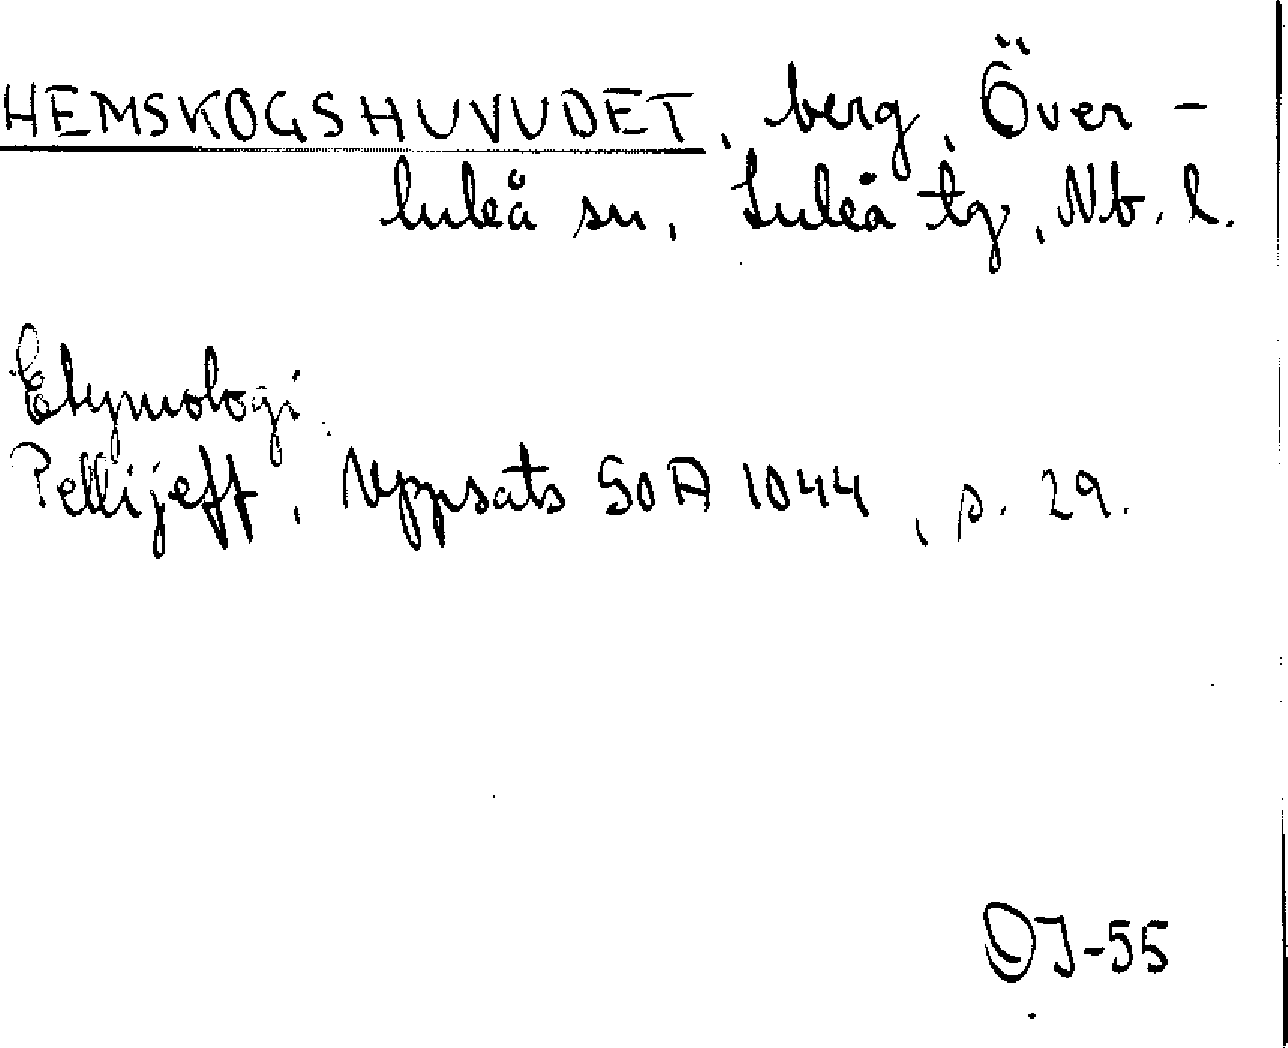 HEMSKOGSHUVUDET, berg, Över-
luleå sn, Luleå tg, Nb. l.
Etymologi.
Pellijeff, Uppsats SOA 1044, s. 29.
OJ-55